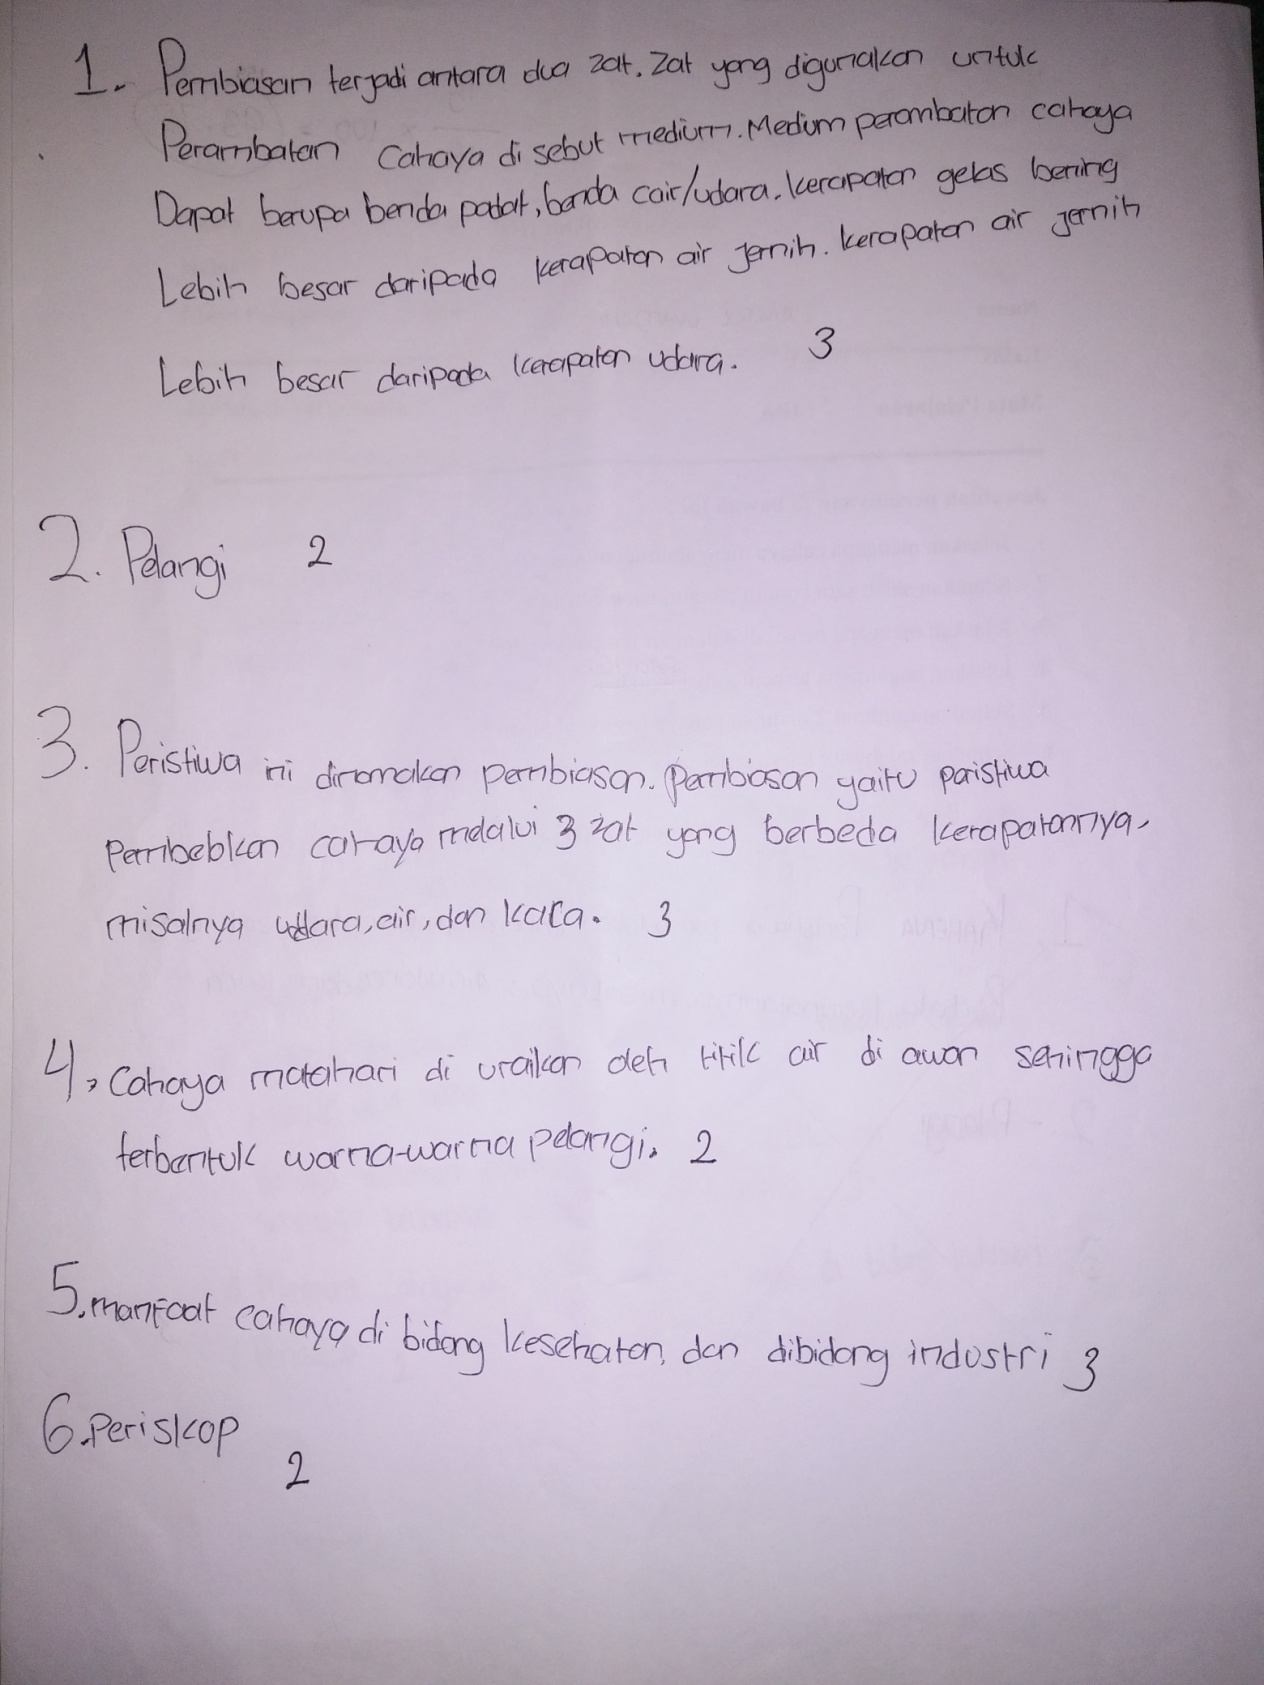 1. Pembiasan terjadi antara dua zat. Zat yang digunakan untuk
Perambatan Cahaya di sebut medium. Medium perambatan cahaya
Dapat berupa benda padat, benda cair/udara. Kerapatan gelas bening
Lebih besar daripada kerapatan air jernih. Kerapatan air jernih
Lebih besar daripada kerapatan udara. 3
2. Pelangi 2
3. Peristiwa ini dinamakan pembiasan. Pembiasan yaitu peristiwa
Pembeblkan cahaya melalui 3 zat yang berbeda kerapatannya,
misalnya udara, air, dan kaca. 3
4, Cahaya matahari di uraikan oleh titik air di awan sehingga
terbentuk warna-warna pelangi. 2
5. manfaat cahaya di bidang kesehatan, dan dibidang industri 3
6. Periskop
2